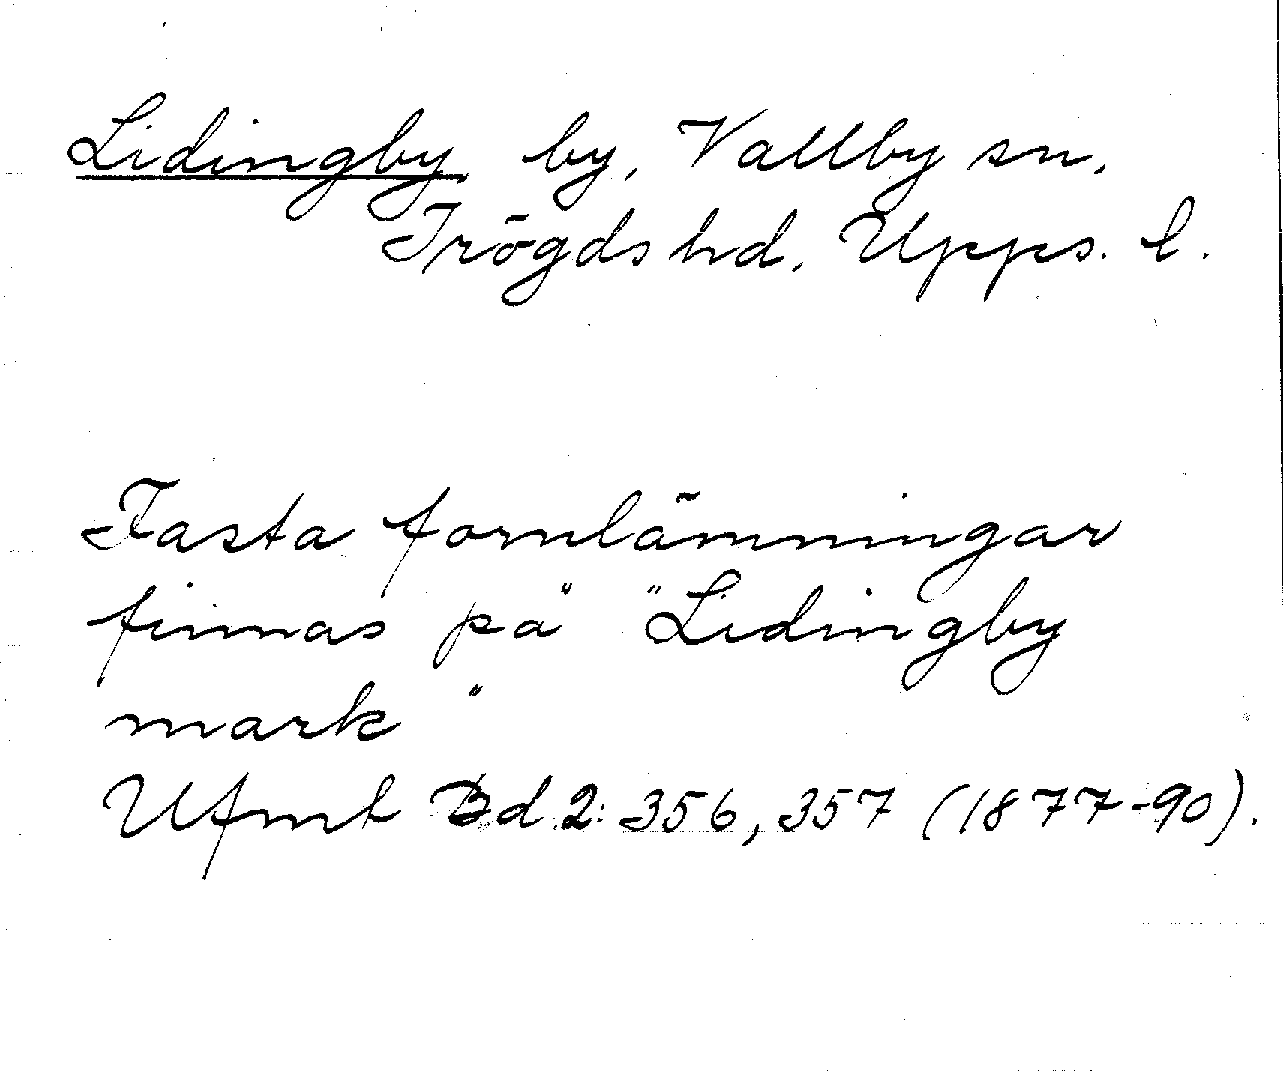 Lidingby by, Vallby sn,
Trögds hd. Upps. l.
Fasta fornlämningar
finnas på "Lidingby
mark"
Ufmt Bd 2: 356, 357 (1877-90).